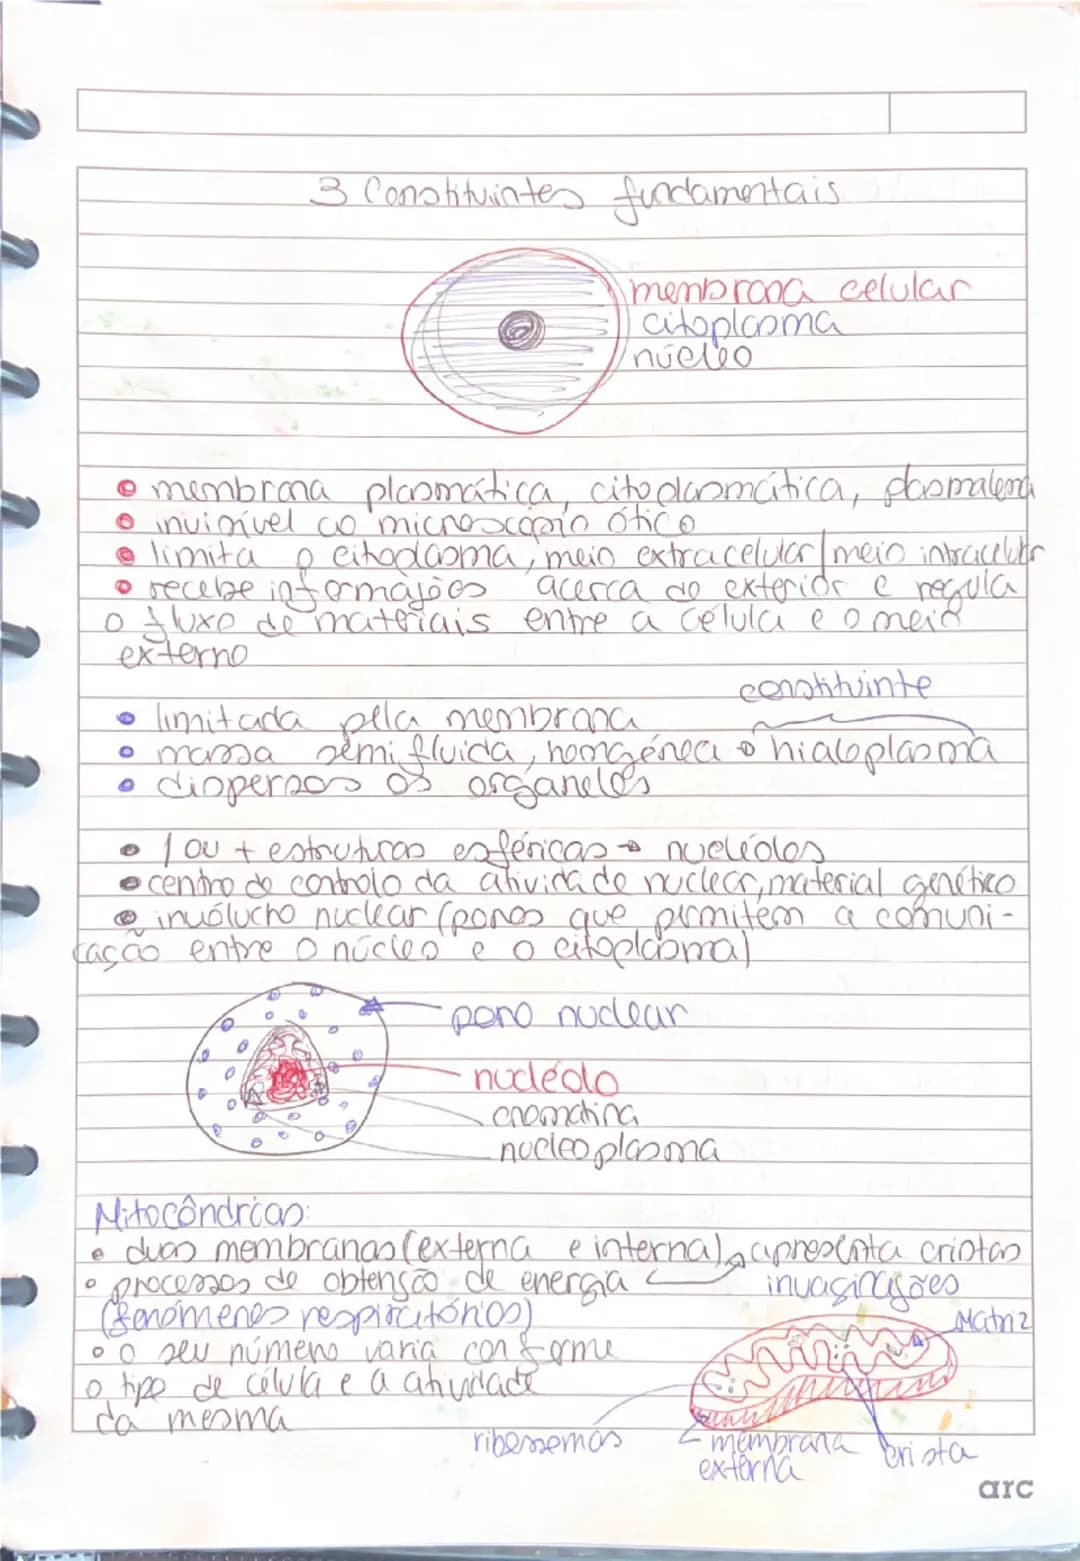 3 Constituintes fundamentais
membrana celular
citoplasma
núcleo
membrana plasmática, citoplasmática, plasmalema
invisível ao microscópio ótico
limita o citoplasma, meio extracelular/meio intracelular
recebe informações acerca do exterior e regula
o fluxo de materiais entre a célula e o meio
externo
constituinte
limitada pela membrana
massa semifluida, homogénea → hialoplasma
dispersos os organelos
1 ou + estruturas esféricas → nucléolos
centro de controlo da atividade nuclear, material genético
invólucro nuclear (poros que permitem a comuni-
cação entre o núcleo e o citoplasma)
poro nuclear
nucléolo
cromatina
nucleoplasma
Mitocôndrias:
duas membranas (externa e interna) → apresenta cristas
processos de obtenção de energia
invaginações
(fenómenos respiratórios)
Matriz
o seu número varia conforme
o tipo de célula e a atividade
da mesma
ribossomas
membrana
externa
crista
arc